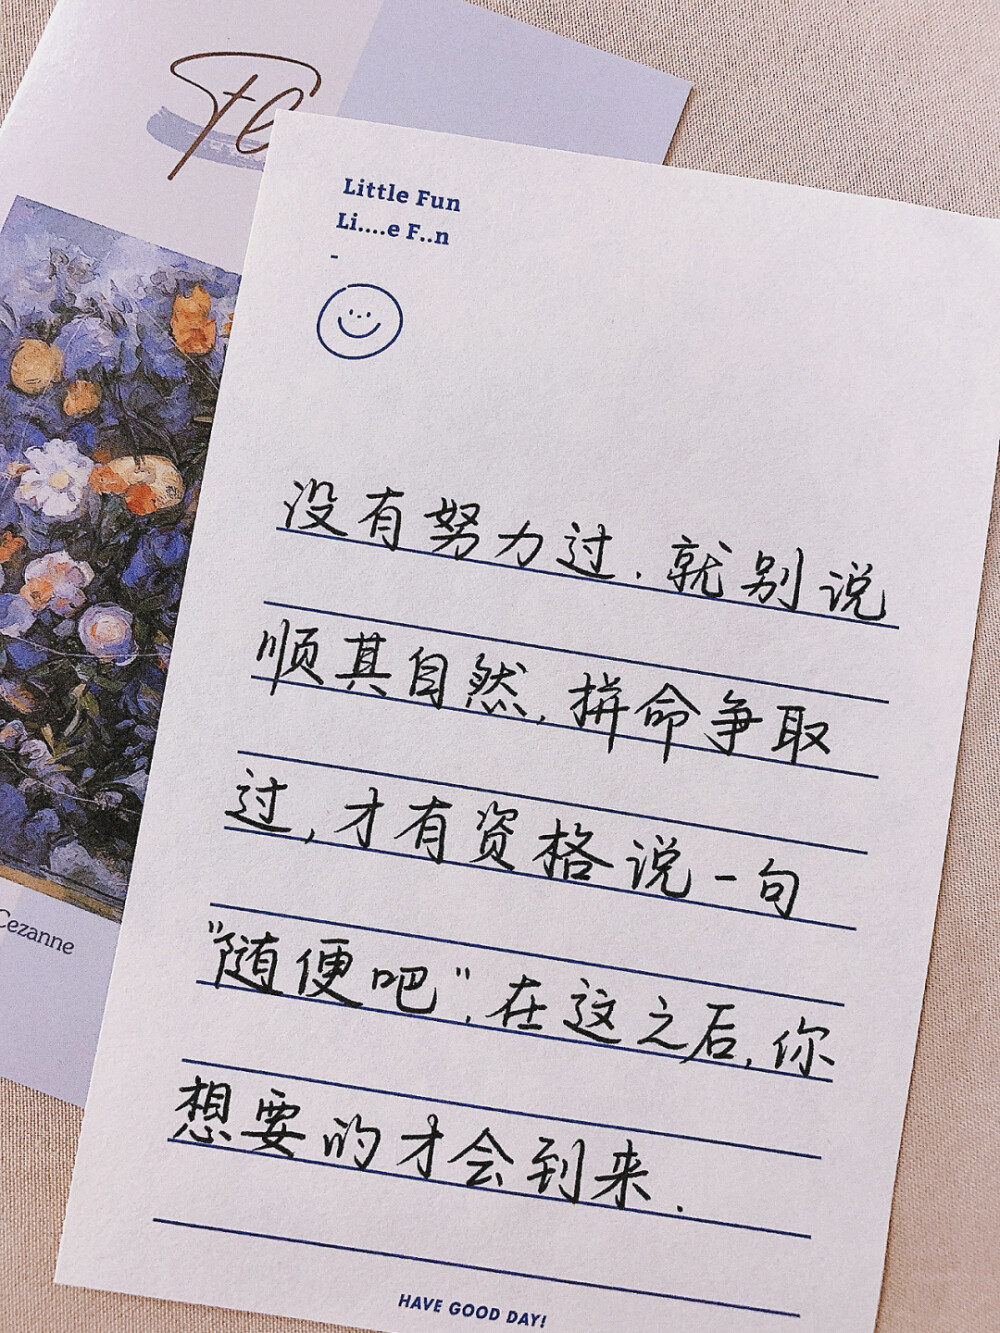 Little Fun
Li....e F..n
-
没有努力过.就别说
顺其自然,拼命争取
过,才有资格说一句
"随便吧",在这之后,你
想要的才会到来.
HAVE GOOD DAY!
Cezanne